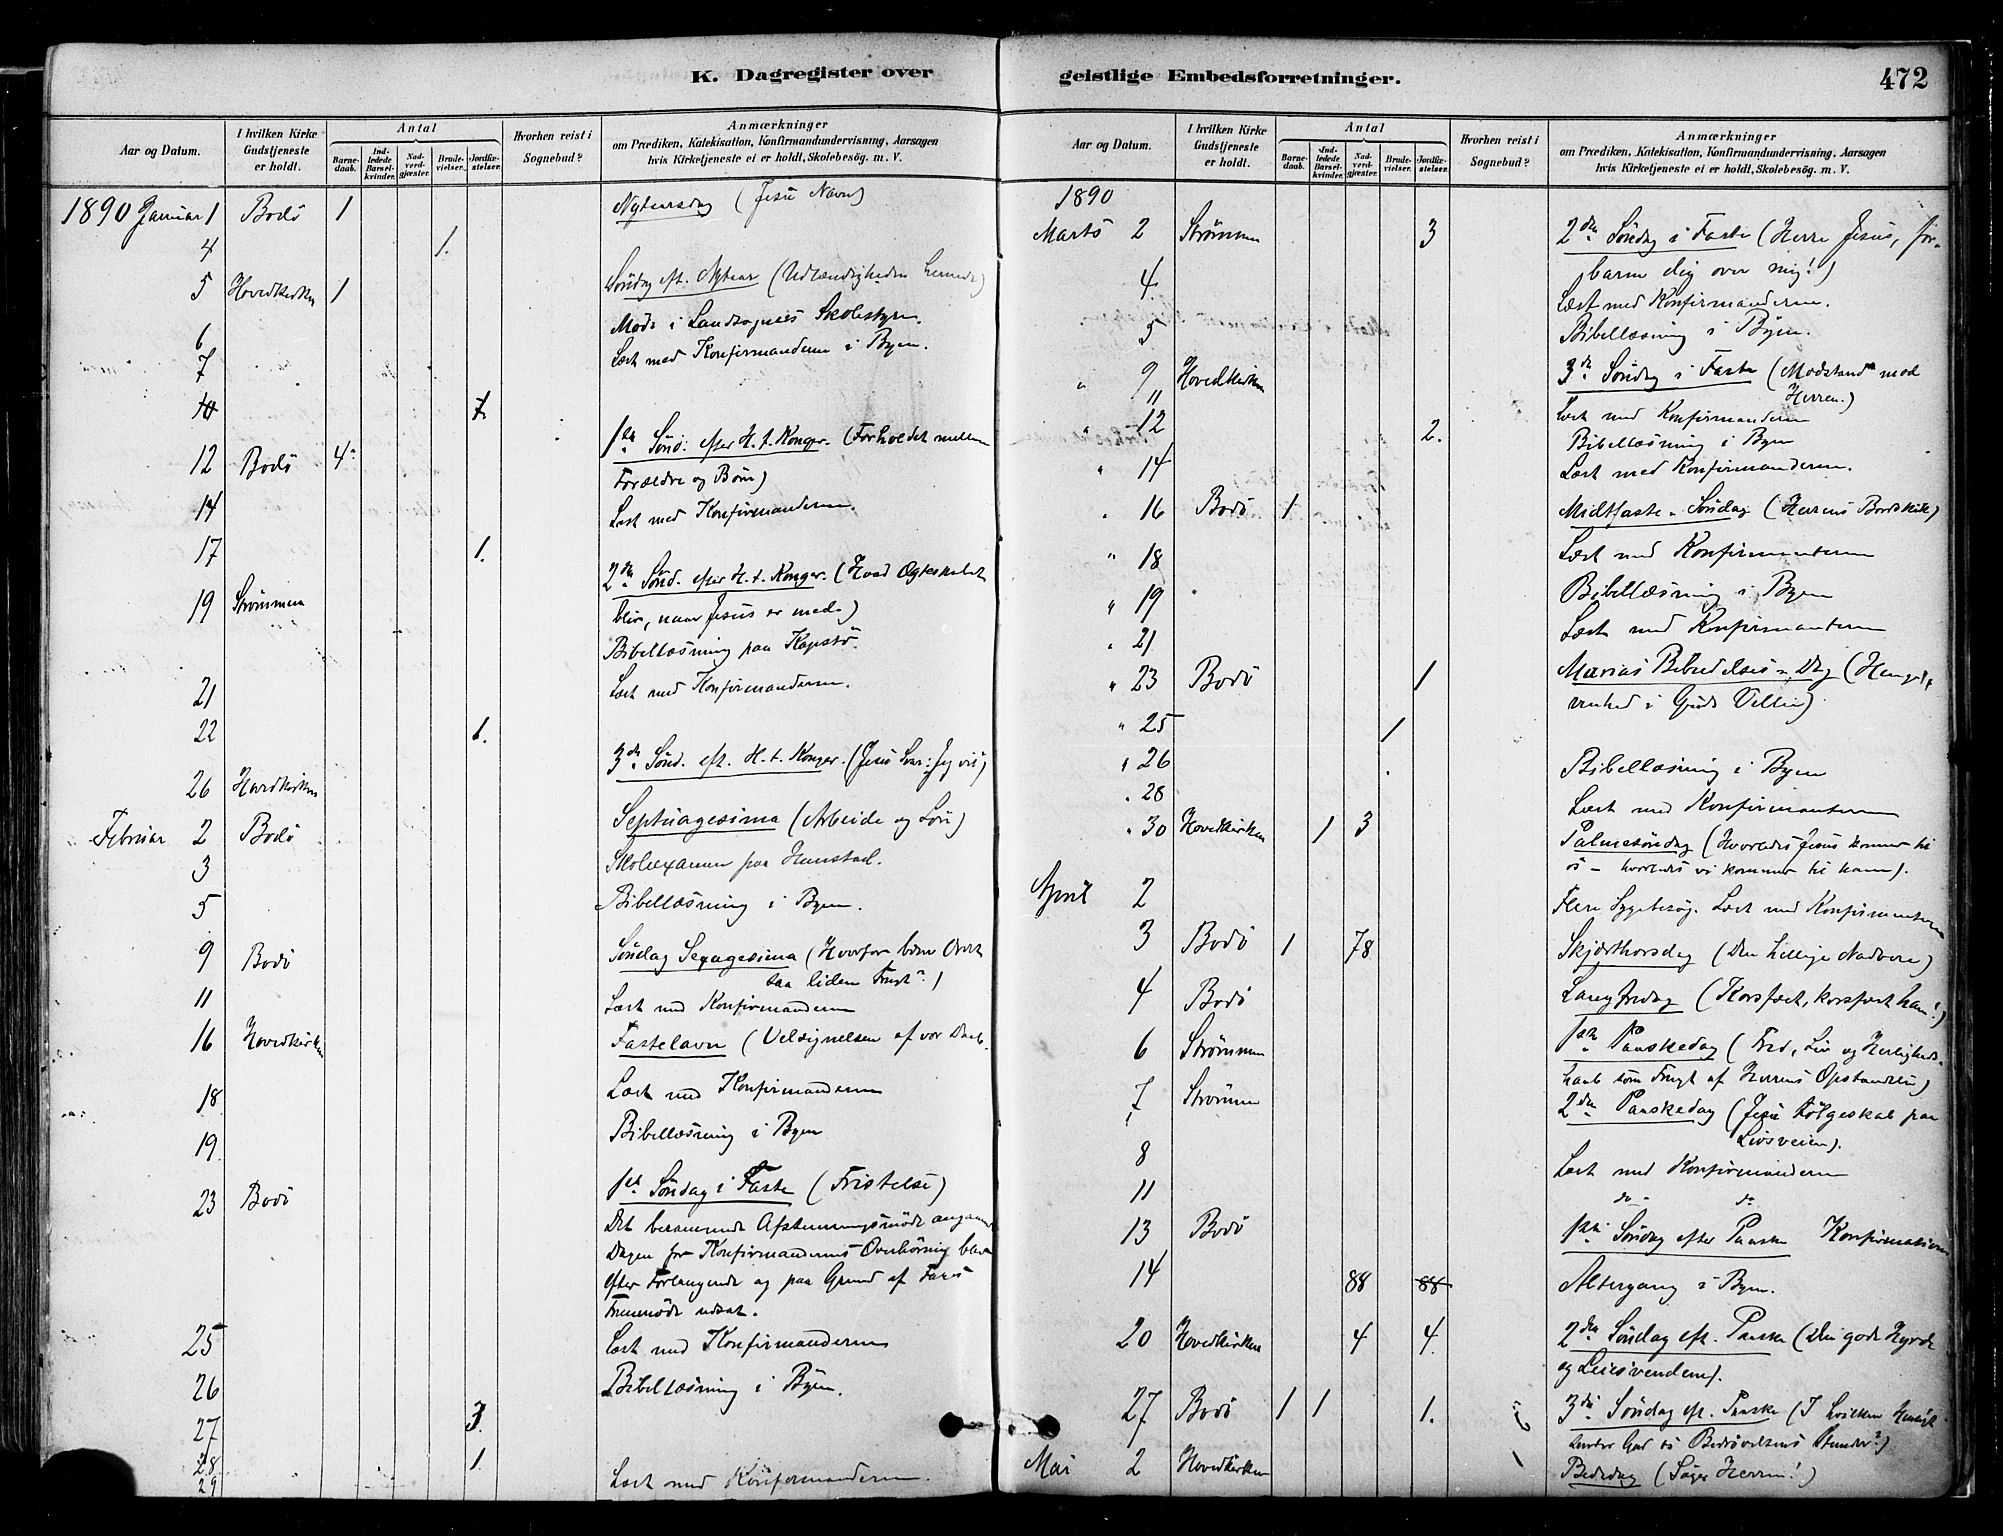 K. Dagregister over
geistlige Embedsforretninger.
472
Aar og Datum.
I hvilken Kirke Gudstjeneste er holdt.
Antal
Barne-daab.
Ind-ledede Barsel-kvinder.
Nad-verd-gjæster.
Brude-vielser.
Jordfæ-stelser.
Hvorhen reist i Sognebud?
Anmærkninger
om Prædiken, Katekisation, Konfirmandundervisning, Aarsagen
hvis Kirketjeneste ei er holdt, Skolebesög. m. V.
1890 Januar 1 Bodö 1 Nytaarsdag (Jesu Navn)
4 1.
5 Hovedkirken 1 Söndag eft. Nytaar (Udlændigheden herned)
6 Möde i Landsognets Skolestyre.
7 Læst med Konfirmanderne i Byen.
10 1.
12 Bodö 4 1ste Sönd. efter H. t. Konger. (Forholdet mellem
Forældre og Börn)
14 Læst med Konfirmanderne.
17 1.
19 Strömmen 2den Sönd. efter H. t. Konger. (Hvad Ægteskabet
bliv, naar Jesus er med)
Bibellæsning paa Kopstö.
21 Læst med Konfirmanderne.
22 1.
26 Hovedkirken 3de Sönd. eft. H. t. Konger. (Jesu Svar: Jeg vil)
Februar 2 Bodö Septuagesima (Arbeide og Lön)
3 Skoleexamen paa Hunstad.
5 Bibellæsning i Byen.
9 Bodö Söndag Sexagesima (Hvorfor bærer Ordet
saa liden Frugt?)
11 Læst med Konfirmanderne
16 Hovedkirken Fastelavn (Velsignelsen af vor Daab.
18 Læst med Konfirmanderne
19 Bibellæsning i Byen
23 Bodö 1ste Söndag i Faste (Fristelse)
Det berammede Afstemningsmöde angaaende
Dagen for Konfirmandernes Overhöring blev
efter Forlangende og paa Grund af
Fremmöde udsat.
25 Læst med Konfirmanderne
26 Bibellæsning i Byen.
27 3.
28 1.
29 Læst med Konfirmanderne.
Aar og Datum.
I hvilken Kirke Gudstjeneste er holdt.
Antal
Barne-daab.
Ind-ledede Barsel-kvinder.
Nad-verd-gjæster.
Brude-vielser.
Jordfæ-stelser.
Hvorhen reist i Sognebud?
Anmærkninger
om Prædiken, Katekisation, Konfirmandundervisning, Aarsagen
hvis Kirketjeneste ei er holdt, Skolebesög. m. V.
1890
Marts 2 Strömmen 3 2den Söndag i Faste (Herre Jesus, for-
barm dig over mig!)
4. Læst med Konfirmanderne.
5 Bibellæsning i Byen.
" 9 Hovedkirken 3de Söndag i Faste (Modstand mod
Herren.)
11 Læst med Konfirmanderne
" 12 2. Bibellæsning i Byen
" 14 Læst med Konfirmanderne.
" 16 Bodö 1 Midtfaste-Söndag (Herrens Bordskik)
" 18 Læst med Konfirmanterne
" 19 Bibellæsning i Byen
" 21 Læst med Konfirmanterne
" 23 Bodö 1 Marias Bebudelses-Dag (Hengi-
venhed i Guds Villie)
" 25 1
" 26 Bibellæsning i Byen
" 28 Læst med Konfirmanterne
" 30 Hovedkirken 1 3 Palmesöndag (Hvorledes Jesus kommer til
os - hvorledes vi kommer til ham).
April 2 Flere Sygebesög. Læst med Konfirmanterne
3 Bodö 1 78 Skjærthorsdag (Den hellige Nadvere)
4 Bodö Langfredag (Korsfæst, korsfæst ham!)
6 Strömmen 1ste Paaskedag (Fred, Liv og Herligheds-
haab som Frugt af Herrens Opstandelse)
7 Strömmen 2den Paaskedag (Jesu Fölgeskab paa
Livsveien).
8 Læst med Konfirmanderne
11 do do
13 Bodö 1ste Söndag efter Paaske Konfirmation
14 88 88 Altergang i Byen.
20 Hovedkirken 4 4. 2den Söndag eft. Paaske (Den gode Hyrde
og Leiesvenden).
27 Bodö 1 1 1. 3die Söndag eft. Paaske (I hvilken Hensigt
sender Gud os Bedrövelsens Stunder?)
Mai 2 Hovedkirken Bededag (Söger Herren!)